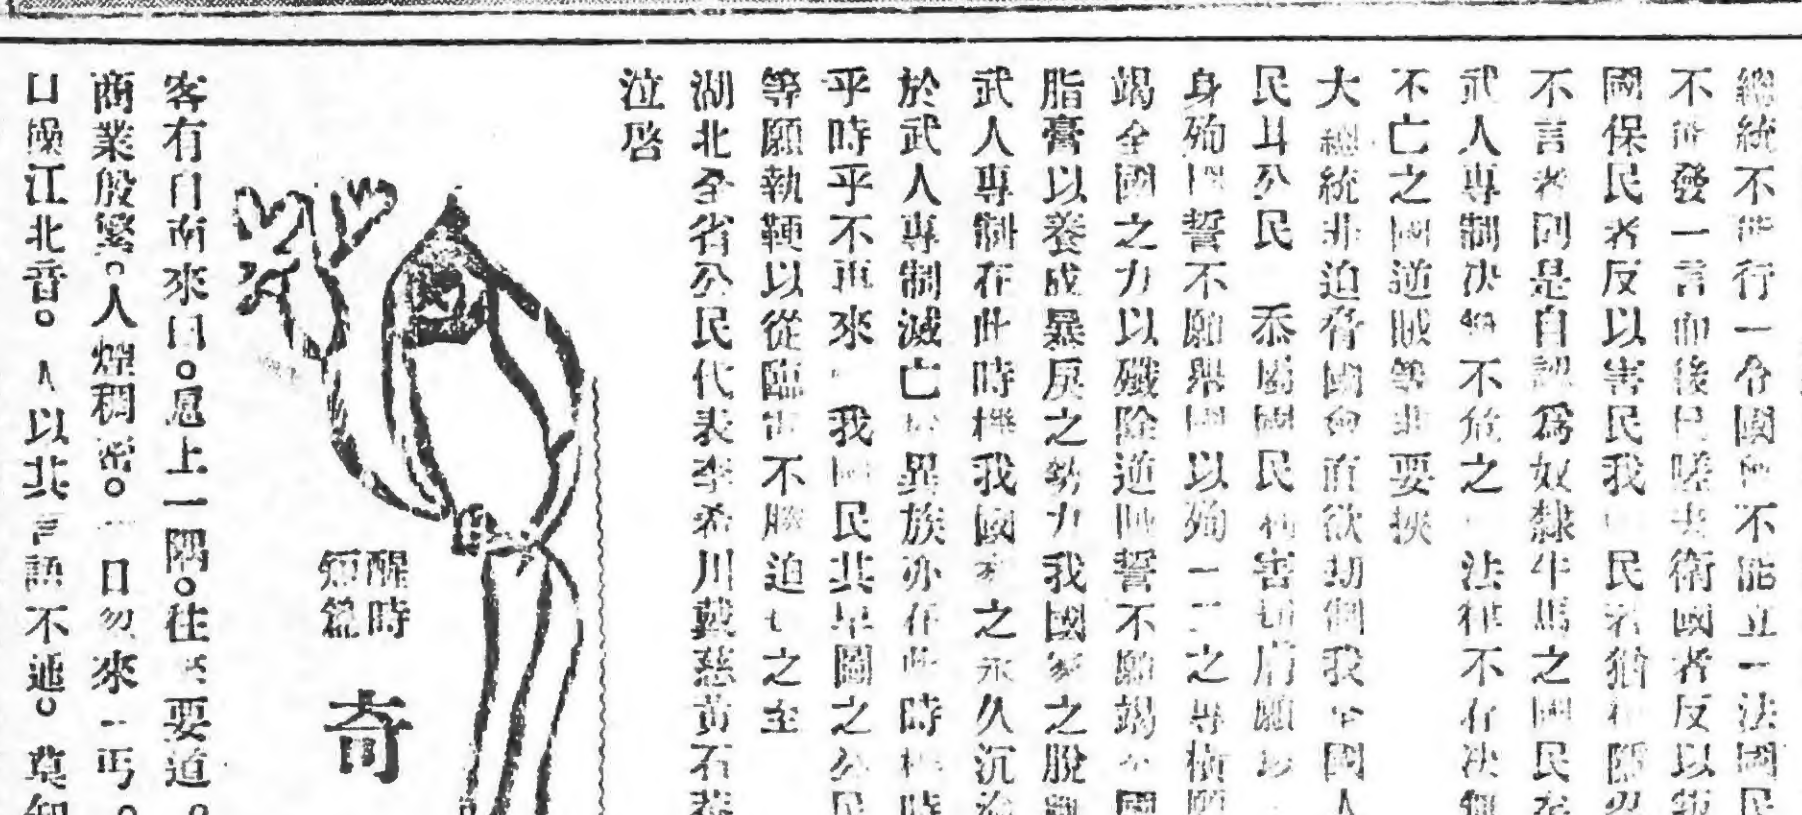 總統不能行一令國會不能立一法國民
不能發一言而後已嗟夫衛國者反以
國保民者反以害民我 民若猶
不言者則是自認爲奴隸牛馬之國民
武人專制決無不危之 法律不存決
不亡之國逆賊等非要挾
大總統非迫脅國會直欲劫制我全國人
民耳公民 忝屬國民利害切膚願以
身殉國誓不願舉國以殉一二之專橫願
竭全國之力以殲除逆賊誓不願竭全國
脂膏以養成暴戾之勢力我國家之脫
武人專制在此時機我國家之永久沉淪
於武人專制滅亡於異族亦在此時機時
乎時乎不再來 我國民共早圖之公民
等願執鞭以從臨電不勝迫切之至
湖北全省公民代表李希川戴慈黃石
泣啓
醒時
短篇
奇
客有自南來曰。滬上一隅。往來要道。
商業殷繁。人煙稠密。一日忽來一丐。
口操江北音。人以其言語不通。莫知